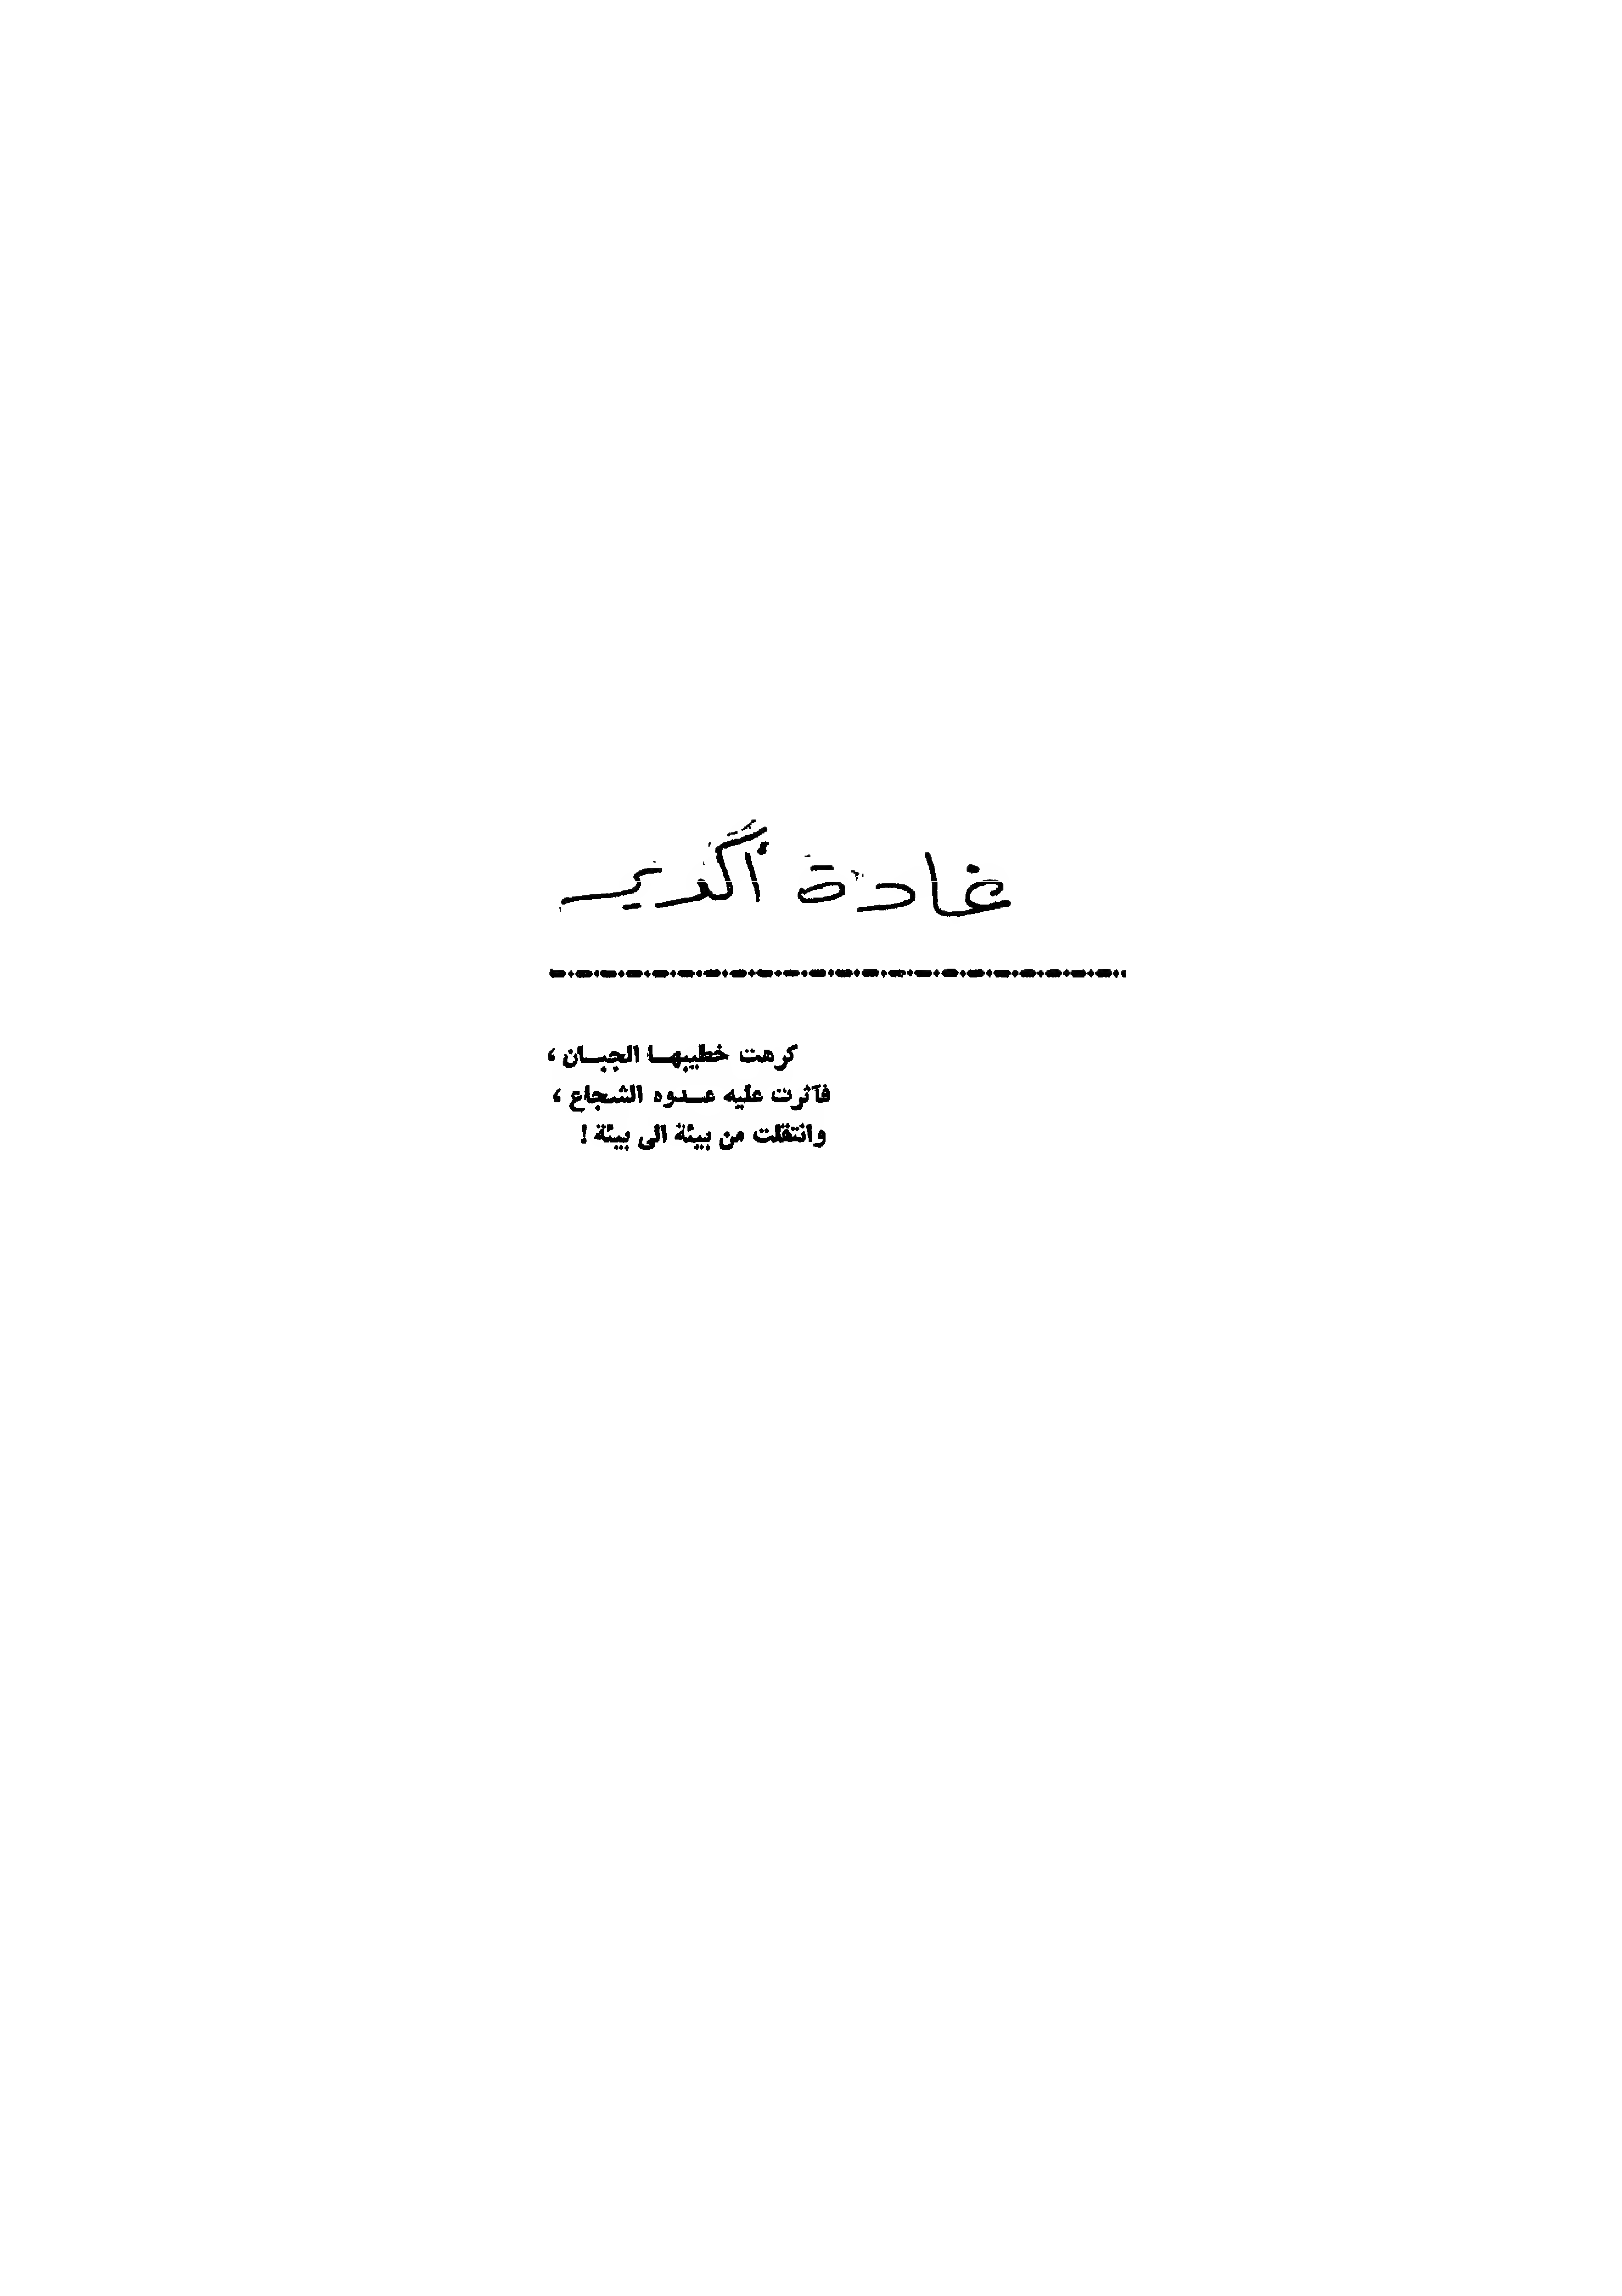 غادة أكدير
كرهت خطيبهـا الجبـان ،
فآثرت عليه عـدوه الشجاع ،
وانتقلت من بيئة الى بيئة !